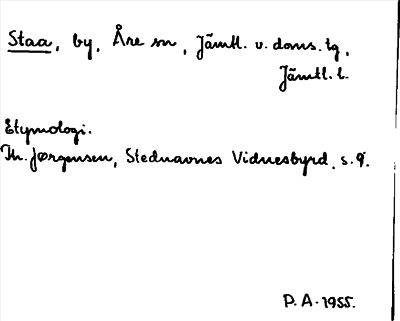 Staa, by, Åre sn, Jämtl. v. doms. tg,
Jämtl. l.
Etymologi.
Th. Jørgensen, Stednavnes Vidnesbyrd, s. 9.
P. A. 1955.